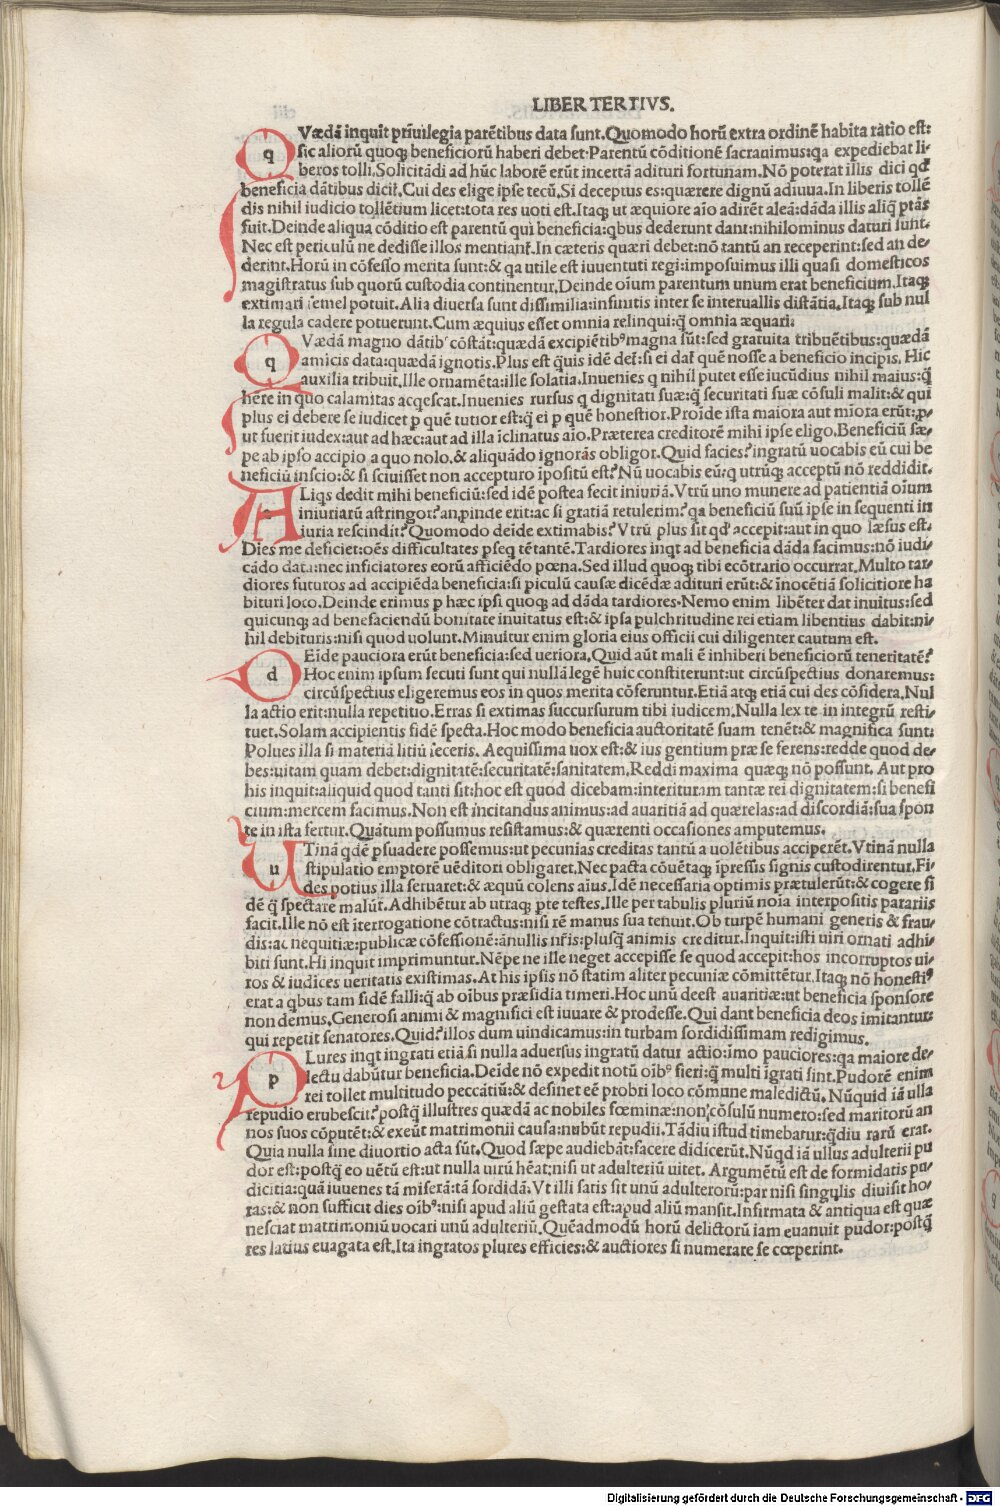 LIBER TERTIVS.
QVædā inquit prīuilegia parētibus data sunt.Quomodo horū extra ordinē habita ratio est:
sic aliorū quoq; beneficiorū haberi debet.Parentū cōditionē sacrauimus:qa expediebat li-
beros tolli.Solicitādi ad hūc laborē erūt incertā adituri fortunam.Nō poterat illis dici qd
beneficia dātibus dicit̄.Cui des elige ipse tecū.Si deceptus es:quærere dignū adiuua.In liberis tollē
dis nihil iudicio tollētium licet:tota res uoti est.Itaq; ut æquiore aīo adirēt aleā:dāda illis aliq̄ ptās
fuit.Deinde aliqua cōditio est parentū qui beneficia:qbus dederunt dant:nihilominus daturi sunt.
Nec est periculū ne dedisse illos mentiant̄.In cæteris quæri debet:nō tantū an receperint:sed an de-
derint.Horū in cōfesso merita sunt:& qa utile est iuuentuti regi:imposuimus illi quasi domesticos
magistratus sub quorū custodia continentur.Deinde oīum parentum unum erat beneficium.Itaq;
extimari semel potuit.Alia diuersa sunt dissimilia:infinitis inter se interuallis distātia.Itaq; sub nul
la regula cadere potuerunt.Cum æquius esset omnia relinqui:q̄ omnia æquari:
QVædā magno dātib' cōstāt:quædā excipiētib9 magna sūt:sed gratuita tribuētibus:quædā
amicis data:quædā ignotis.Plus est q̄uis idē det̄:si ei dat̄ quē nosse a beneficio incipis.Hic
auxilia tribuit.Ille ornamēta:ille solatia.Inuenies q nihil putet esse iucūdius nihil maius:q̄
here in quo calamitas acqescat.Inuenies rursus q dignitati suæ:q̄ securitati suæ cōsuli malit:& qui
plus ei debere se iudicet p quē tutior est:q̄ ei p quē honestior.Proīde ista maiora aut mīora erūt:p-
ut fuerit iudex:aut ad hæc:aut ad illa īclinatus aīo.Præterea creditorē mihi ipse eligo.Beneficiū sæ-
pe ab ipso accipio a quo nolo.& aliquādo ignorās obligor.Quid facies?ingratū uocabis eū cui be
neficiū inscio:& si sciuisset non accepturo īpositū est?Nū uocabis eū:q utrūq; acceptū nō reddidit.
ALiqs dedit mihi beneficiū:sed idē postea fecit iniuriā.Vtrū uno munere ad patientiā oīum
iniuriarū astringor?an,pinde erit:ac si gratiā retulerim?qa beneficiū suū ipse in sequenti in
iuria rescindit?Quomodo deīde extimabis?Vtrū plus sit qd accepit:aut in quo læsus est.
Dies me deficiet:oēs difficultates pseq tētantē.Tardiores inqt ad beneficia dāda facimus:nō iudi-
cādo data:nec inficiatores eorū afficiēdo pœna.Sed illud quoq; tibi ecōtrario occurrat.Multo tar-
diores futuros ad accipiēda beneficia:si piculū causæ dicēdæ adituri erūt:& īnocētiā solicitiore ha
bituri loco.Deinde erimus p hæc ipsi quoq; ad dāda tardiores.Nemo enim libēter dat inuitus:sed
quicunq; ad benefaciendū bonitate inuitatus est:& ipsa pulchritudine rei etiam libentius dabit:ni-
hil debituris:nisi quod uolunt.Minuitur enim gloria eius officii cui diligenter cautum est.
dEide pauciora erūt beneficia:sed ueriora.Quid aūt mali ē inhiberi beneficiorū teneritatē?
Hoc enim ipsum secuti sunt qui nullā legē huic constiterunt:ut circūspectius donaremus:
circūspectius eligeremus eos in quos merita cōferuntur.Etiā atq; etiā cui des cōsidera.Nul
la actio erit:nulla repetitio.Erras si extimas succursurum tibi iudicem.Nulla lex te in integrū resti-
tuet.Solam accipientis fidē specta.Hoc modo beneficia auctoritatē suam tenēt:& magnifica sunt:
Polues illa si materiā litiū feceris.Aequissima uox est:& ius gentium præ se ferens:redde quod de-
bes:uitam quam debet:dignitatē:securitatē:sanitatem.Reddi maxima quæq; nō possunt.Aut pro
his inquit:aliquid quod tanti sit:hoc est quod dicebam:interituram tantæ rei dignitatem:si benefi
cium:mercem facimus.Non est incitandus animus:ad auaritiā ad quærelas:ad discordiā:sua spon
te in ista fertur.Quātum possumus resistamus:& quærenti occasiones amputemus.
uTinā qdē psuadere possemus:ut pecunias creditas tantū a uolētibus acciperēt.Vtinā nulla
stipulatio emptorē uēditori obligaret.Nec pacta cōuētaq; īpressis signis custodirentur.Fi-
des potius illa seruaret:& æquū colens aīus.Idē necessaria optimis prætulerūt:& cogere si
dē q̄ spectare malūt.Adhibētur ab utraq; pte testes.Ille per tabulis pluriū noīa interpositis parariis
facit.Ille nō est īterrogatione cōtractus:nisi rē manus sua tenuit.Ob turpē humani generis & frau-
dis:ac nequitiæ:publicæ cōfessionē:ānullis nr̄is:plusq̄ animis creditur.Inquit:isti uiri ornati adhi-
biti sunt.Hi inquit imprimuntur.Nēpe ne ille neget accepisse se quod accepit:hos incorruptos ui-
ros & iudices ueritatis existimas.At his ipsis nō statim aliter pecuniæ cōmittētur.Itaq; nō honesti9
erat a qbus tam fidē falli:q̄ ab oībus præsidia timeri.Hoc unū deest auaritiæ:ut beneficia sponsore
non demus.Generosi animi & magnifici est iuuare & prodesse.Qui dant beneficia deos imitantur:
qui repetit fenatores.Quid?illos dum uindicamus:in turbam sordidissimam redigimus.
pLures inqt ingrati etiā si nulla aduersus ingratū datur actio:īmo pauciores:qa maiore de-
lectu dabūtur beneficia.Deīde nō expedit notū oīb9 fieri:q̄ multi īgrati sint.Pudorē enim
rei tollet multitudo peccātiū:& desinet eē probri loco cōmune maledictū.Nūquid iā ulla
repudio erubescit?postq̄ illustres quædā ac nobiles fœminæ:non,cōsulū numero:sed maritorū an
nos suos cōputēt:& exeūt matrimonii causa:nubūt repudii.Tādiu istud timebatur:q̄diu rarū erat.
Quia nulla sine diuortio acta sūt.Quod sæpe audiebāt:facere didicerūt.Nūqd iā ullus adulterii pu
dor est:postq̄ eo uētū est:ut nulla uirū hēat:nisi ut adulteriū uitet.Argumētū est de formidatis pu-
dicitia:quā iuuenes tā miserā:tā sordidā.Vt illi satis sit unū adulterorū:par nisi singulis diuisit ho-
ras:& non sufficit dies oīb9:nisi apud aliū gestata est:apud aliū mansit.Infirmata & antiqua est quæ
nesciat matrimoniū uocari unū adulteriū.Quēadmodū horū delictorū iam euanuit pudor:postq̄
res latius euagata est.Ita ingratos plures efficies:& auctiores si numerare se cœperint.
q
q
d
u
p
Digitalisierung gefördert durch die Deutsche Forschungsgemeinschaft - DFG